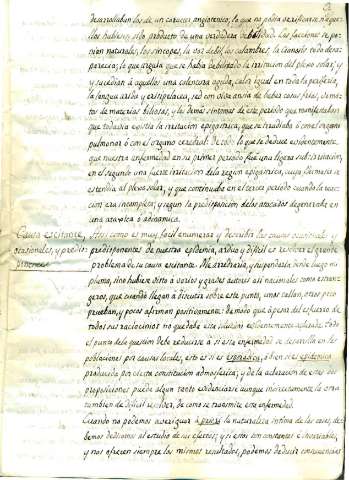 desarrollaban los de un caracter angiotenico; lo que no podia verificarse si aque-
llos habiesen sido producto de una verdadera debilidad. Las facciones se po-
nian naturales, los sincopes, la voz debil, los calambres, la cianosis todo desa-
parecia; lo que arguia que se habia debilitado la irritacion del plexo solar; y
y sucedian á aquellos una calentura aguda, calor igual en toda la periferia,
la lengua arida y erisipelacea, sed con ansia de bebidas frias, demos-
tos de materias biliosas, y los demás sintomas de este periodo que manifestaban
que todavia existia la irritacion epigastrica, que se irradiaba ó como el organo
pulmonar ó con el organo cerebral: de todo lo que se deduce evidentemente,
que nuestra enfermedad en su primer periodo fué una ligera sub-irritacion,
en el segundo una fuerte irritacion de la region epigastrica, cuya se
estendia al plexo solar, y que continuaba en el tercer periodo cuando la reac-
cion era incompleta; y segun la predisposicion de los atacados degeneraba en
una ataxica ó adinamica.
Causa escitante, Asi como es muy facil enumerar y describir las causas ocasionales y
ocasionales, y predis- predisponentes de nuestra epidemia, arduo y dificil es resolver el grande
ponentes problema de su causa escitante. Me arredraria, y suspenderia desde luego mi
pluma, sino hubiese visto á varios y graves autores asi nacionales como estran-
geros, que cuando llegan á discutir sobre este punto, unos callan, otros poco
prueban, y pocos afirman positivamente: de modo que á pesar del esfuerzo de
todos sus raciocinios no quedaba esta cuestion evidentemente aclarada. Todo
el punto de la question debe reducirse á si esta enfermedad se desarrolla en las
poblaciones por causas locales, esto es si es esporadica, ó bien si es epidemica
producida por cierta constitucion admosferica; y de la aclaracion de estas dos
proposiciones puede algun tanto evidenciarse aunque indirectamente la otra
tambien de dificil resolver, de como se trasmite esta enfermedad.
Cuando no podemos averiguar á priori la naturaleza intima de las cosas, de-
bemos dedicarnos al estudio de sus efectos; y si estos son constantes é invariables,
y nos ofrecen siempre los mismos resultados, podemos deducir consecuencias